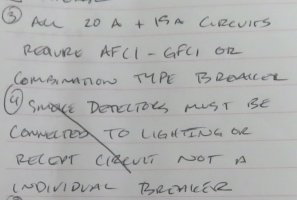 ③ ALL 20 A + 15A CIRCUITS
REQUIRE AFCI - GFCI OR
COMBINATION TYPE BREAKER
④ SMOKE DETECTORS MUST BE
CONNECTED TO LIGHTING OR
RECEPT CIRCUIT NOT A
INDIVIDUAL BREAKER